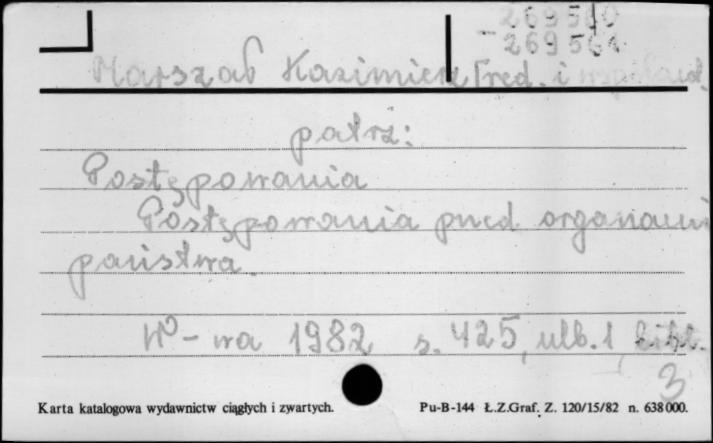 269560
269561
Marszał Kazimierz [red. i współaut.
patrz:
Postępowania
Postępowania przed organami
państwa.
W-wa 1982 s. 425, nlb. 1, bibl.
3
Karta katalogowa wydawnictw ciągłych i zwartych. Pu-B-144 Ł.Z.Graf. Z. 120/15/82 n. 638000.